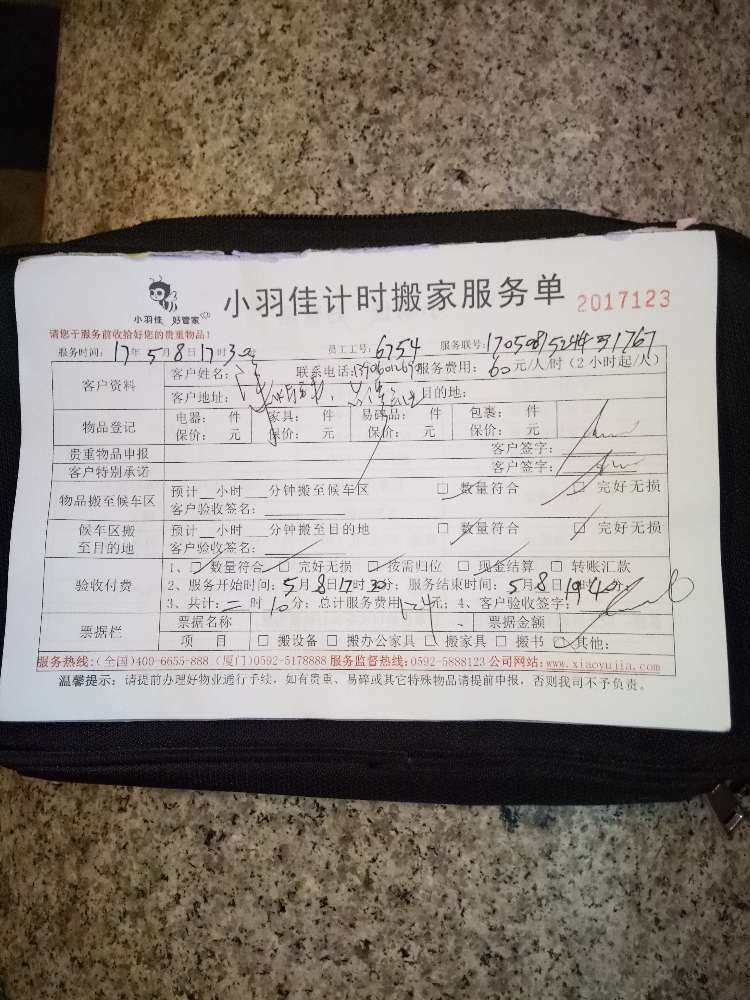 小羽佳 好管家
小羽佳计时搬家服务单 2017123
请您于服务前收给好您的贵重物品!
服务时间: 17年5月8日17时30分 员工工号: 6754 服务联号:
客户资料 客户姓名: 联系电话: 服务费用: 60元/人/时(2小时起/人)
客户地址: 目的地:
物品登记 电器: 件 家具: 件 易碎品: 件 包裹: 件
保价: 元 保价: 元 保价: 元 保价: 元
贵重物品申报 客户签字:
客户特别承诺 客户签字:
物品搬至候车区 预计__小时 ___分钟搬至候车区 □ 数量符合 □ 完好无损
客户验收签名:
候车区搬至目的地 预计__小时 ___分钟搬至目的地 □ 数量符合 □ 完好无损
客户验收签名:
验收付费 1、□ 数量符合 □ 完好无损 □ 按需归位 □ 现金结算 □ 转账汇款
2、服务开始时间: 5月8日17时30分; 服务结束时间: 5月8日19时40分;
3、共计: 二时10分; 总计服务费用 元; 4、客户验收签字:
票据栏 票据名称 票据金额
项 目 □ 搬设备 □ 搬办公家具 □ 搬家具 □ 搬书 □ 其他:
服务热线:(全国)400-6655-888 (厦门)0592-5178888 服务监督热线:0592-5888123 公司网站:www.xiaoyujia.com
温馨提示: 请提前办理好物业通行手续, 如有贵重、易碎或其它特殊物品请提前申报, 否则我司不予负责。